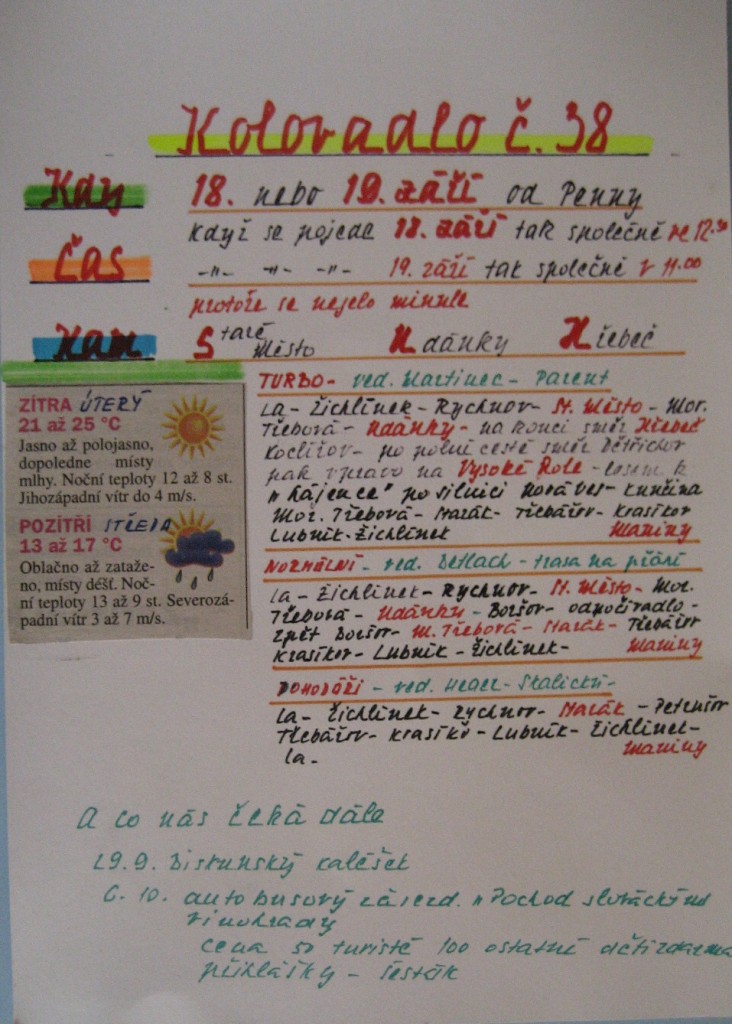 Koloradlo č. 38
Kdy 18. nebo 19. září od Penny
Když se pojede 18. září tak společně ve 12.30
Čas -"- -"- -"- 19. září tak společně v 11.00
protože se nejelo minule
Kam Staré Město Udánky Hřebeč
TURBO - ved. Martinec - Parent
La - Žichlínek - Rychnov - St. Město - Mor.
Třebová - Udánky - na konci směr Hřebeč
Koclířov - po polní cestě směr Dětřichov
pak vpravo na Vysoké Pole - lesem k
"hájence" po silnici Nová Ves - Kunčina
Mor. Třebová - Maják - Třebařov - Krasíkov
Lubník - Žichlínek Maniny
NORMÁLNÍ - ved. Detlach - trasa na přání
La - Žichlínek - Rychnov - St. Město - Mor.
Třebová - Udánky - Boršov - odpočívadlo -
zpět Boršov - M. Třebová - Maják - Třebařov
Krasíkov - Lubník - Žichlínek - Maniny
POHODÁŘI - ved. Heger - Skalický -
La - Žichlínek - Rychnov - Maják - Petrušov
Třebařov - Krasíkov - Lubník - Žichlínek -
La - Maniny
ZÍTRA ÚTERÝ
21 až 25 °C
Jasno až polojasno,
dopoledne místy
mlhy. Noční teploty 12 až 8 st.
Jihozápadní vítr do 4 m/s.
POZÍTŘÍ STŘEDA
13 až 17 °C
Oblačno až zataže-
no, místy déšť. Noč-
ní teploty 13 až 9 st. Severozá-
padní vítr 3 až 7 m/s.
A co nás čeká dále
29.9. Biskupský kalíšek
6. 10. autobusový zájezd "Pochod slováckými
vinohrady
cena 50 turisté 100 ostatní děti zdarma
přihlášky - Šesták